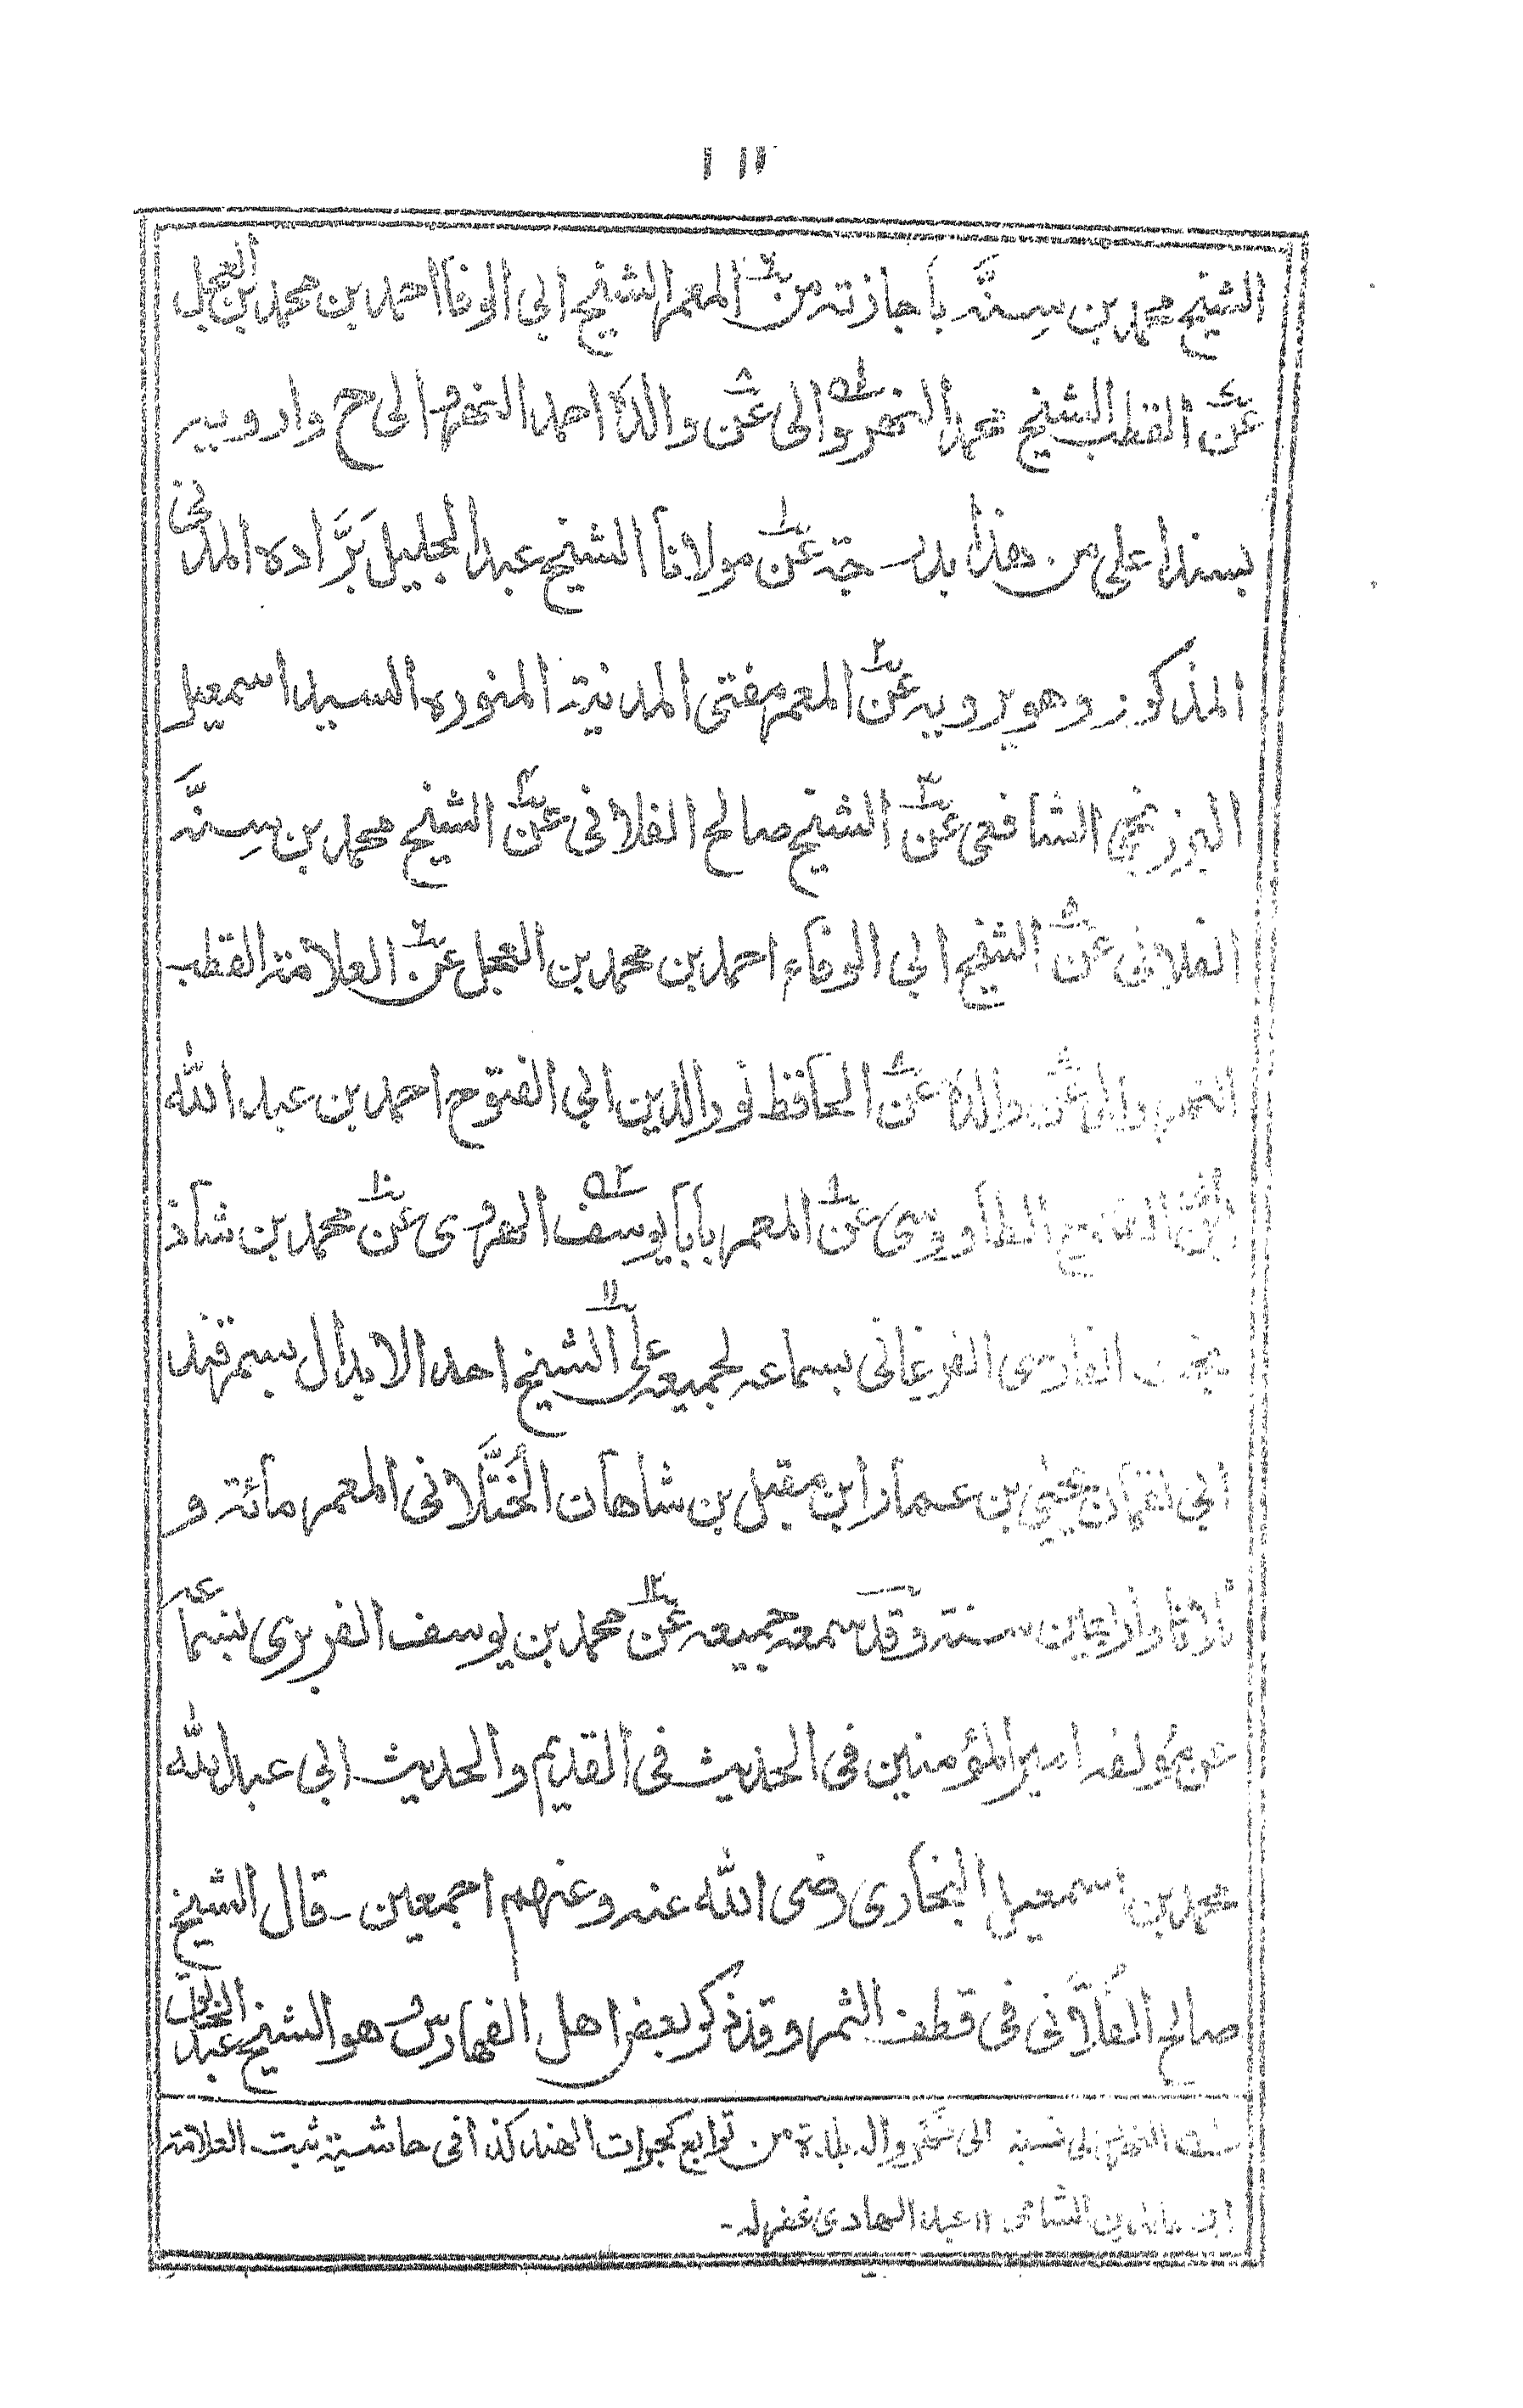 الشيخ محمد بن سِنَّه باجازته من المعمر الشيخ ابى الوفا احمد بن محمد بن العجل
عن القطب الشيخ محمد النهروالى عن والده احمد النهروالى ح وارويه
بسند اعلى من هذا بدرجة عن مولانا الشيخ عبد الجليل بَرَّاده المدنى
المذكور وهو يرويه عن المعمر مفتى المدينة المنوره السيد اسمعيل
البرزنجى الشافعى عن الشيخ صالح الفلانى عن الشيخ محمد بن سِنَّه
الفلانى عن الشيخ ابى الوفاء احمد بن محمد بن العجل عن العلامة القطب
النهروالى عن والده عن الحافظ نور الدين ابى الفتوح احمد بن عبد الله
الطاووسى عن المعمر بابا يوسف الهروى عن محمد بن شاذ
بخت الفارسى الفرغانى بسماعه لجميعه على الشيخ احد الابدال بسمرقند
ابى لقمان يحيى بن عمار ابن مقبل بن شاهان الخُتَّلانى المعمر مائة و
ثلاثا واربعين سنة وقد سمعه جميعه عن محمد بن يوسف الفربرى بسماعه
عن مؤلفه امير المؤمنين فى الحديث فى القديم والحديث ابى عبد الله
محمد بن اسمعيل البخارى رضى الله عنه وعنهم اجمعين ـ قال الشيخ
صالح الفُلَّانى فى قطف الثمر وقد ذكر بعض اهل الفهارس وهو الشيخ عبد الخالق
النهروالى نسبة الى نهرواله بلدة من توابع كجرات الهند كذا فى حاشية ثبت العلامة
ابن عابدين الشامى ١٢ عبد الهادى غفر له ـ